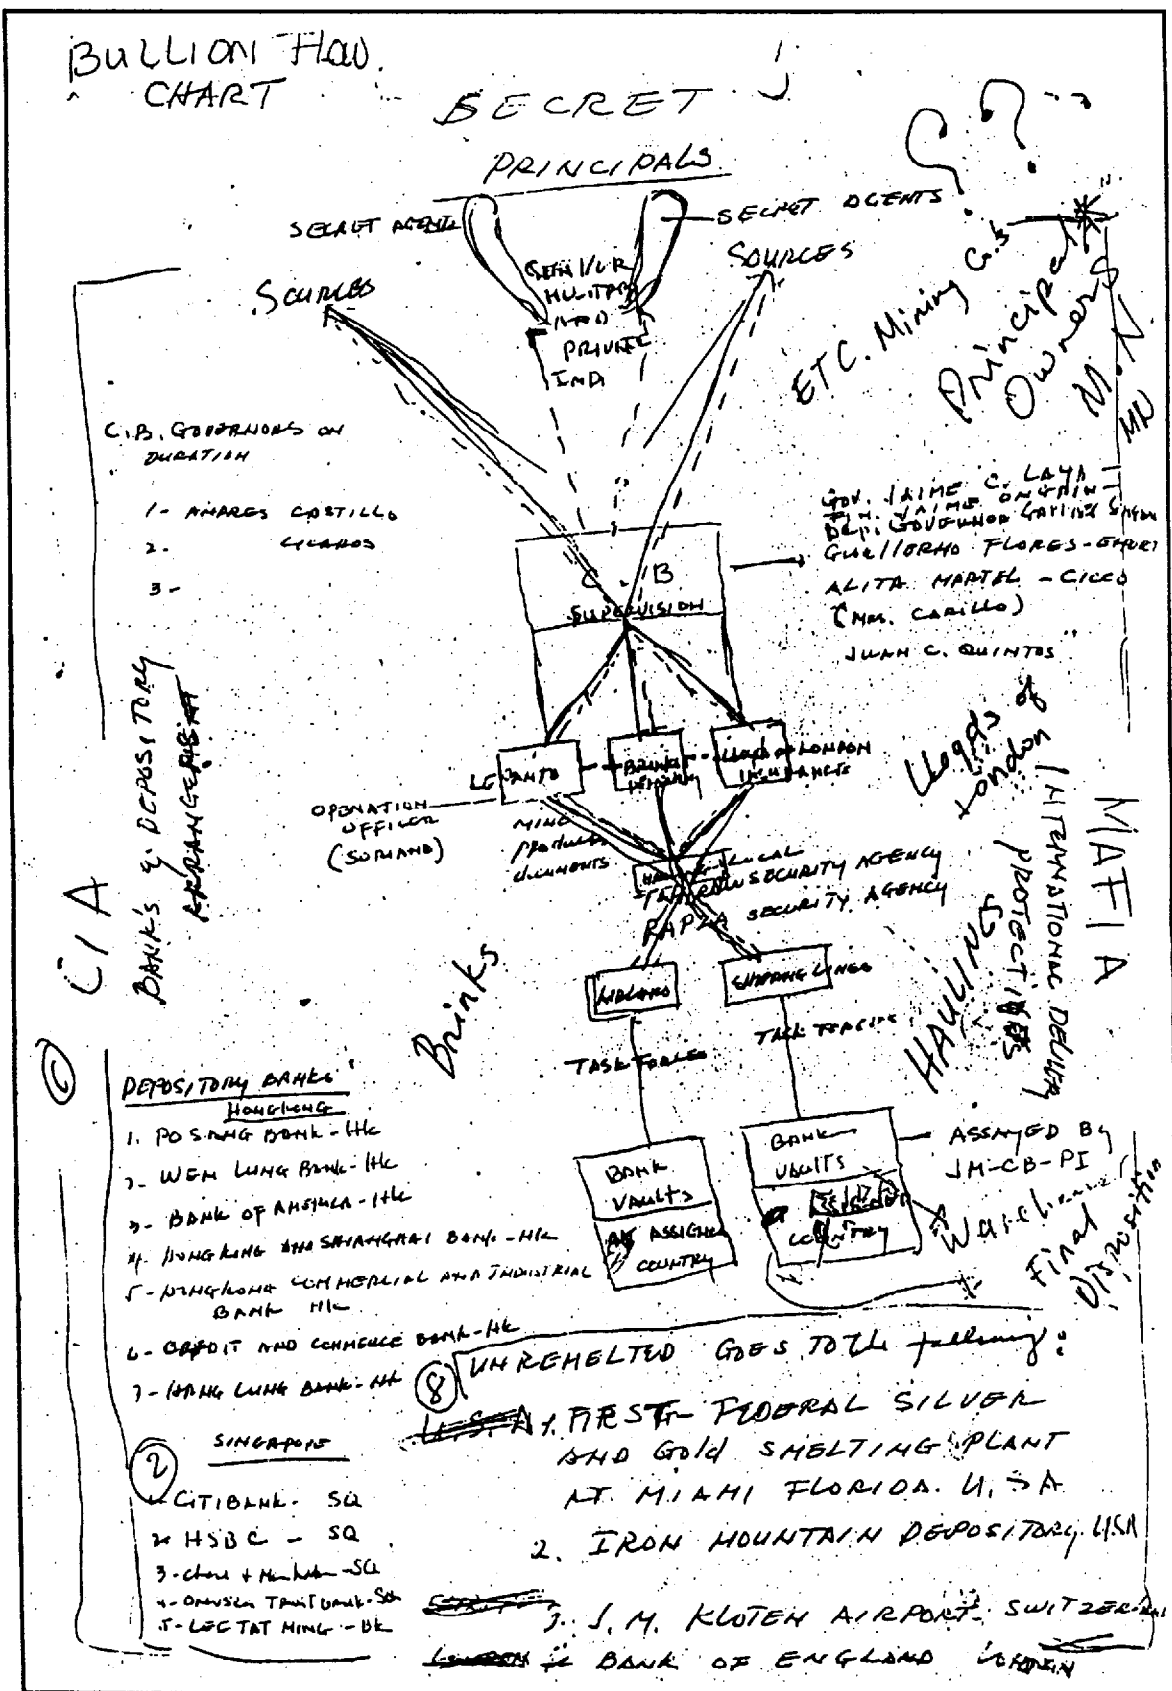 BULLION FLOW
CHART
SECRET
PRINCIPALS
SECRET AGENTS
SECRET AGENTS
SOURCES
SOURCES
MILITARY
AND
PRIVATE
IND
ETC. Mining
Principal
Owners
C.B. GOVERNORS ON
DURATION
1- CASTILLO
2.
3-
GOV. JAIME C. LAYA
JAIME ONGPIN
DEP. GOVERNOR
FLORES-
ALITA MARTEL -
(MRS. CARILLO)
JUAN C. QUINTOS
C. B
SUPERVISION
LEPANTO
BRINKS
LLOYD OF LONDON
INSURANCE
OPERATION
OFFICER
(SORIANO)
MINE
products
documents
LOCAL
SECURITY AGENCY
SECURITY AGENCY
Lloyds of
London
MAFIA
INTERNATIONAL
PROTECTION
HAULING
CIA
BANK'S & DEPOSITORY
ARRANGEMENT
Brinks
SHIPPING LINES
TASK FORCES
TASK FORCES
BANK
VAULTS
ASSIGNED
COUNTRY
BANK
VAULTS
COUNTRY
ASSAYED By
JM-CB-PI
Final
Disposition
DEPOSITORY BANKS
HONGKONG
1. PO SANG BANK - HK
2- BANK - HK
3- BANK OF AMERICA - HK
4. HONGKONG AND SHANGHAI BANK - HK
5- HONGKONG COMMERCIAL AND INDUSTRIAL
BANK HK
6- CREDIT AND COMMERCE BANK - HK
7- HANG LUNG BANK - HK
SINGAPORE
2
CITIBANK - SG
2 HSBC - SG
3- Chase + Manhattan - SG
8
UNREMELTED GOES TO the following:
U.S.A. 1. FIRST FEDERAL SILVER
AND Gold SMELTING PLANT
AT MIAMI FLORIDA. U.S.A
2. IRON MOUNTAIN DEPOSITORY. USA
3. J.M. KLOTEN AIRPORT. SWITZERLAND
BANK OF ENGLAND LONDON